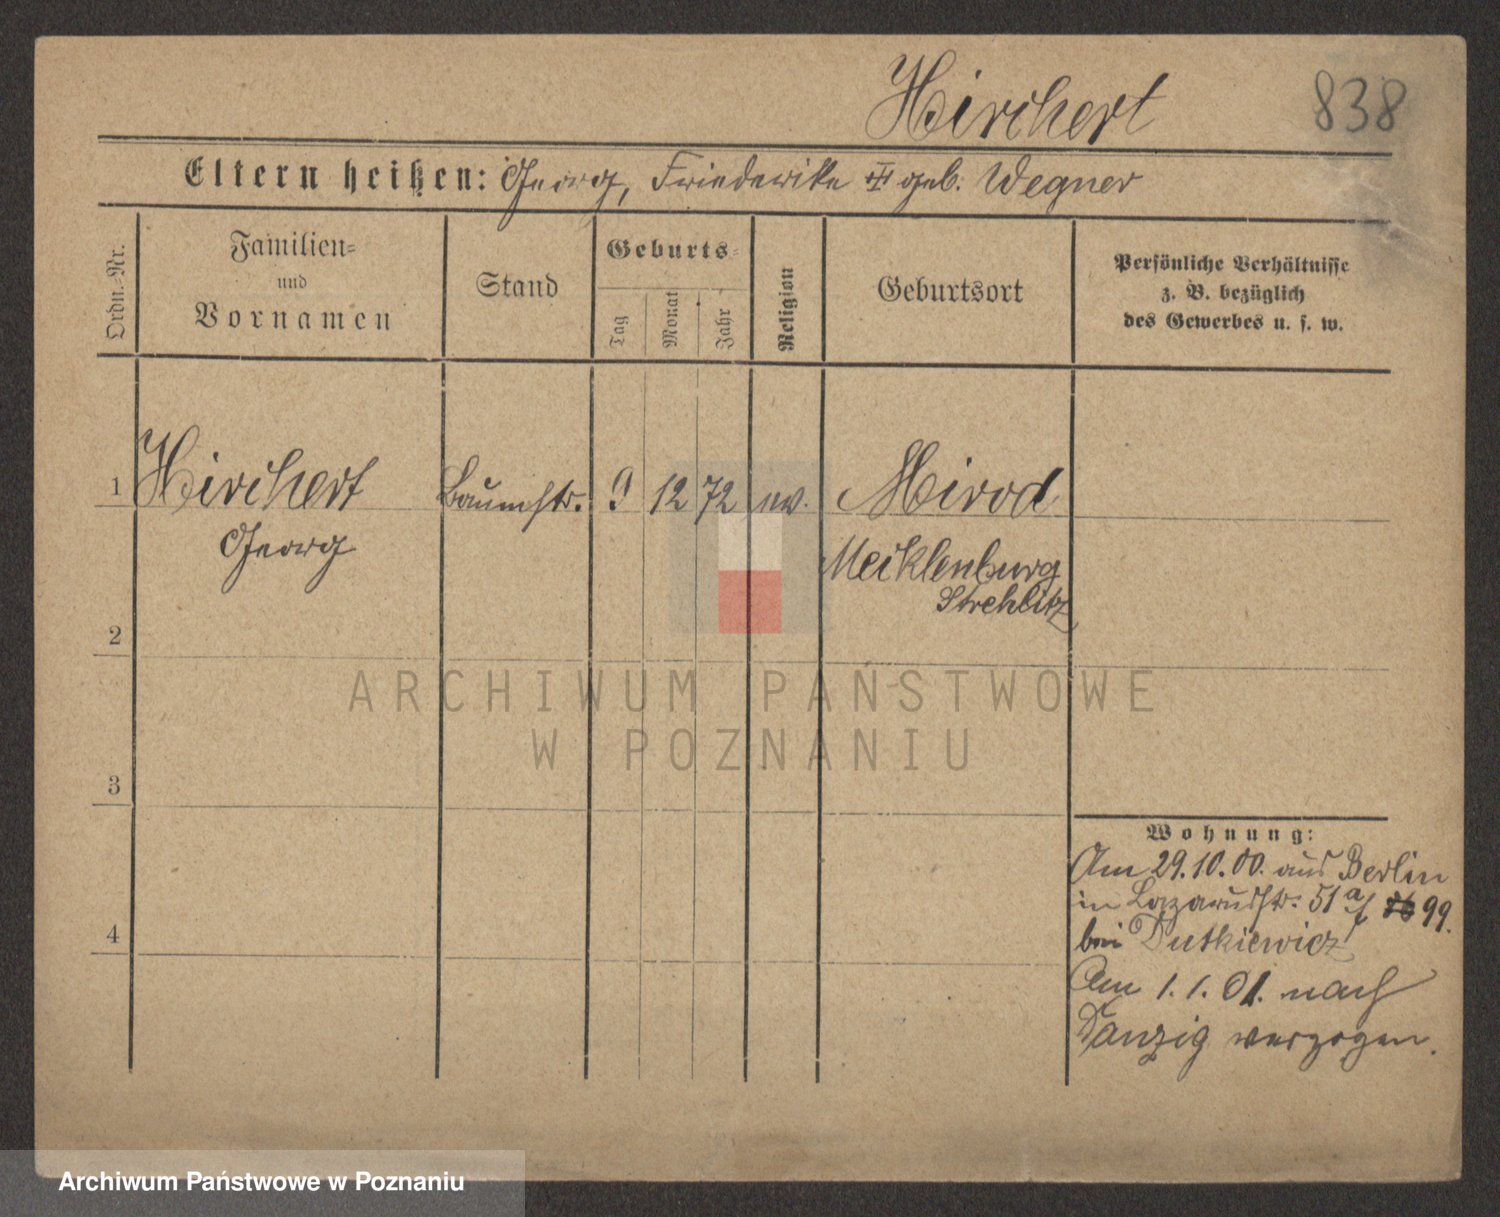 Hirchert 838
Eltern heißen: Georg, Friederike geb. Wegner
Ordn.-Nr.
Familien-
und
Vornamen
Stand
Geburts-
Tag
Monat
Jahr
Religion
Geburtsort
Persönliche Verhältnisse
z. B. bezüglich
des Gewerbes u. s. w.
1 Hirchert Baumstr. 9 12 72 ev. Mirod
Georg Mecklenburg
Strehlitz
2
3
4
Wohnung:
Am 29.10.00. aus Berlin
in Lazarusstr. 51 a/f 99.
bei Dutkiewicz
Am 1. 1. 01. nach
Danzig verzogen.
ARCHIWUM PAŃSTWOWE
W POZNANIU
Archiwum Państwowe w Poznaniu